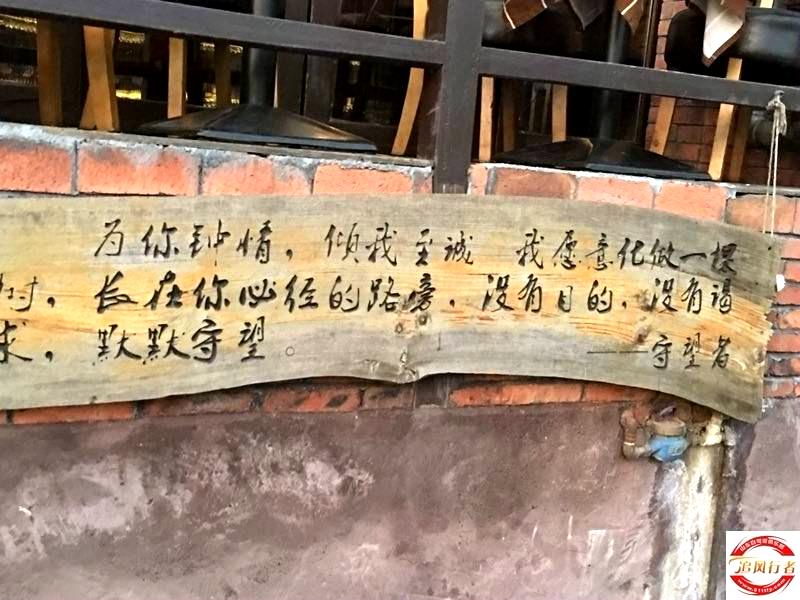 为你钟情，倾我至诚 我愿意化做一棵
树，长在你必经的路旁，没有目的，没有谒
求，默默守望。 ——守望者
追风行者